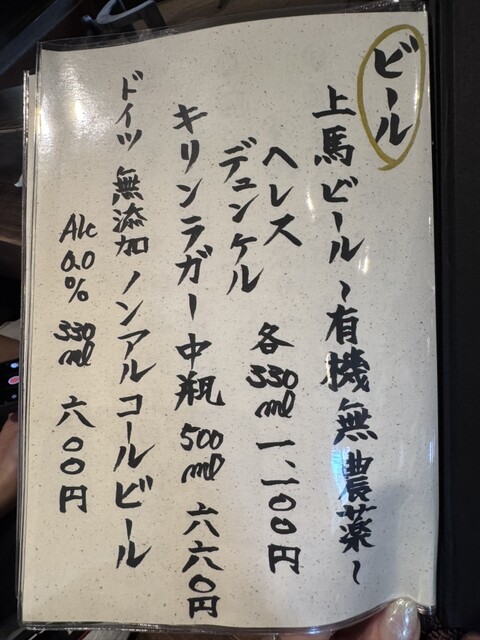 ビール
上馬ビール〜有機無農薬〜
ヘレス
デュンケル
各330ml 一、一〇〇円
キリンラガー中瓶 500ml 六六〇円
ドイツ 無添加 ノンアルコールビール
Alc 0.0% 330ml 六〇〇円